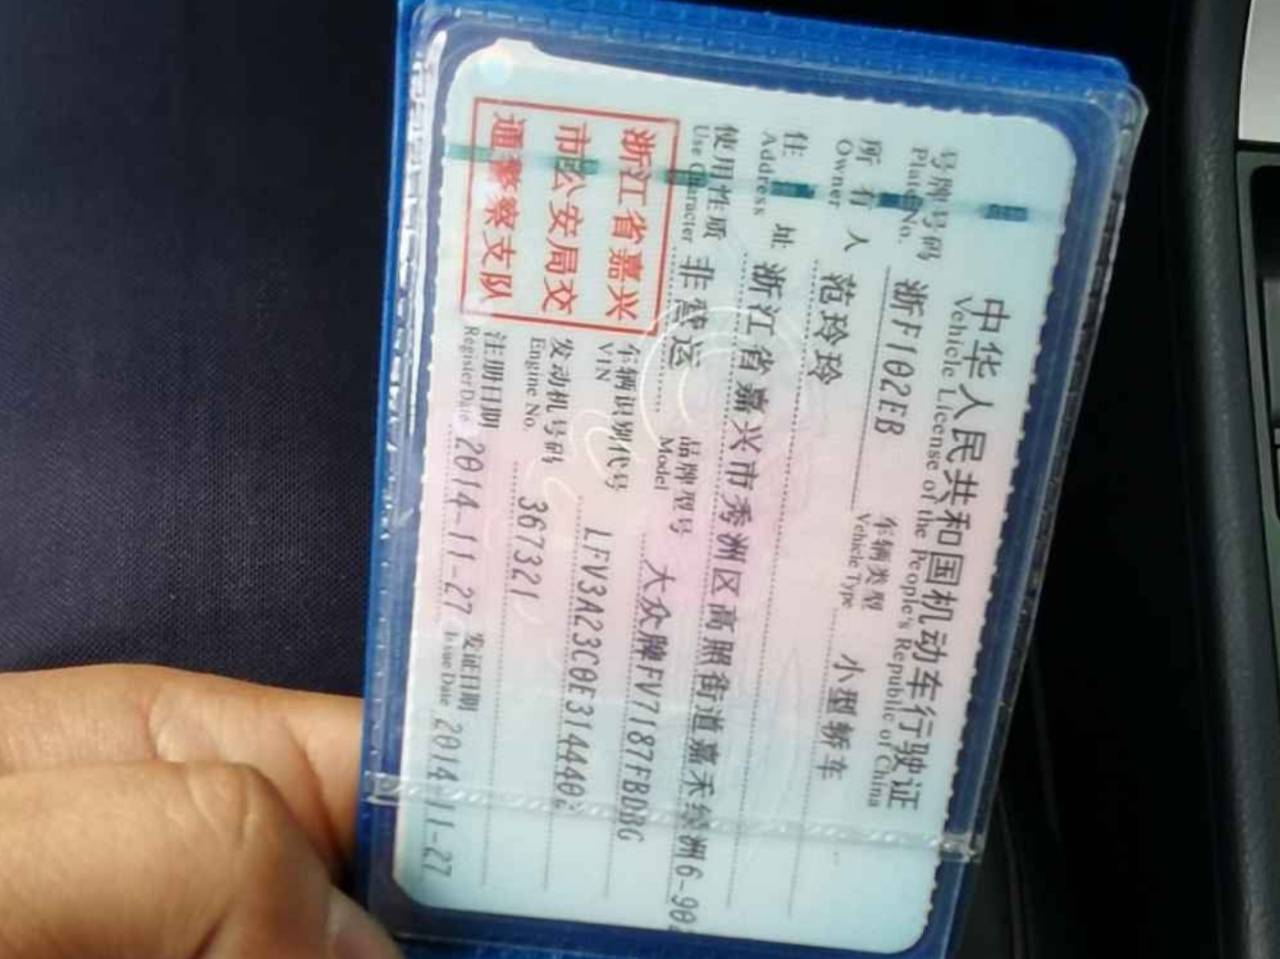 中华人民共和国机动车行驶证
Vehicle License of the People's Republic of China
号牌号码 浙F102EB 车辆类型 小型轿车
Plate No. Vehicle Type
所有人 范玲玲
Owner
住址 浙江省嘉兴市秀洲区高照街道嘉禾绿洲6-90
Address
使用性质 非营运 品牌型号 大众牌FV7187FBDBG
Use Character Model
浙江省嘉兴
市公安局交
通警察支队
车辆识别代号 LFV3A23C0E3144402
VIN
发动机号码 367321
Engine No.
注册日期 2014-11-27 发证日期 2014-11-27
Register Date Issue Date